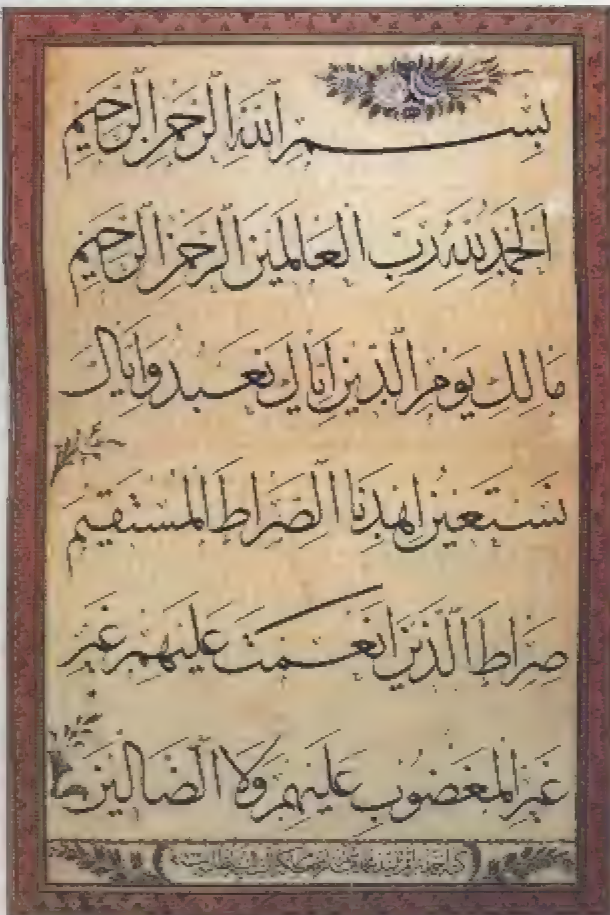 بِسْمِ اللهِ الرَّحْمنِ الرَّحِيمِ
اَلْحَمْدُ لِلّهِ رَبِّ الْعَالَمِينَ الرَّحْمنِ الرَّحِيمِ
مَالِكِ يَوْمِ الدِّينِ اِيَّاكَ نَعْبُدُ وَاِيَّاكَ
نَسْتَعِينُ اِهْدِنَا الصِّرَاطَ الْمُسْتَقِيمَ
صِرَاطَ الَّذِينَ اَنْعَمْتَ عَلَيْهِمْ غَيْرِ
غَيْرِ الْمَغْضُوبِ عَلَيْهِمْ وَلَا الضَّالِّينَ